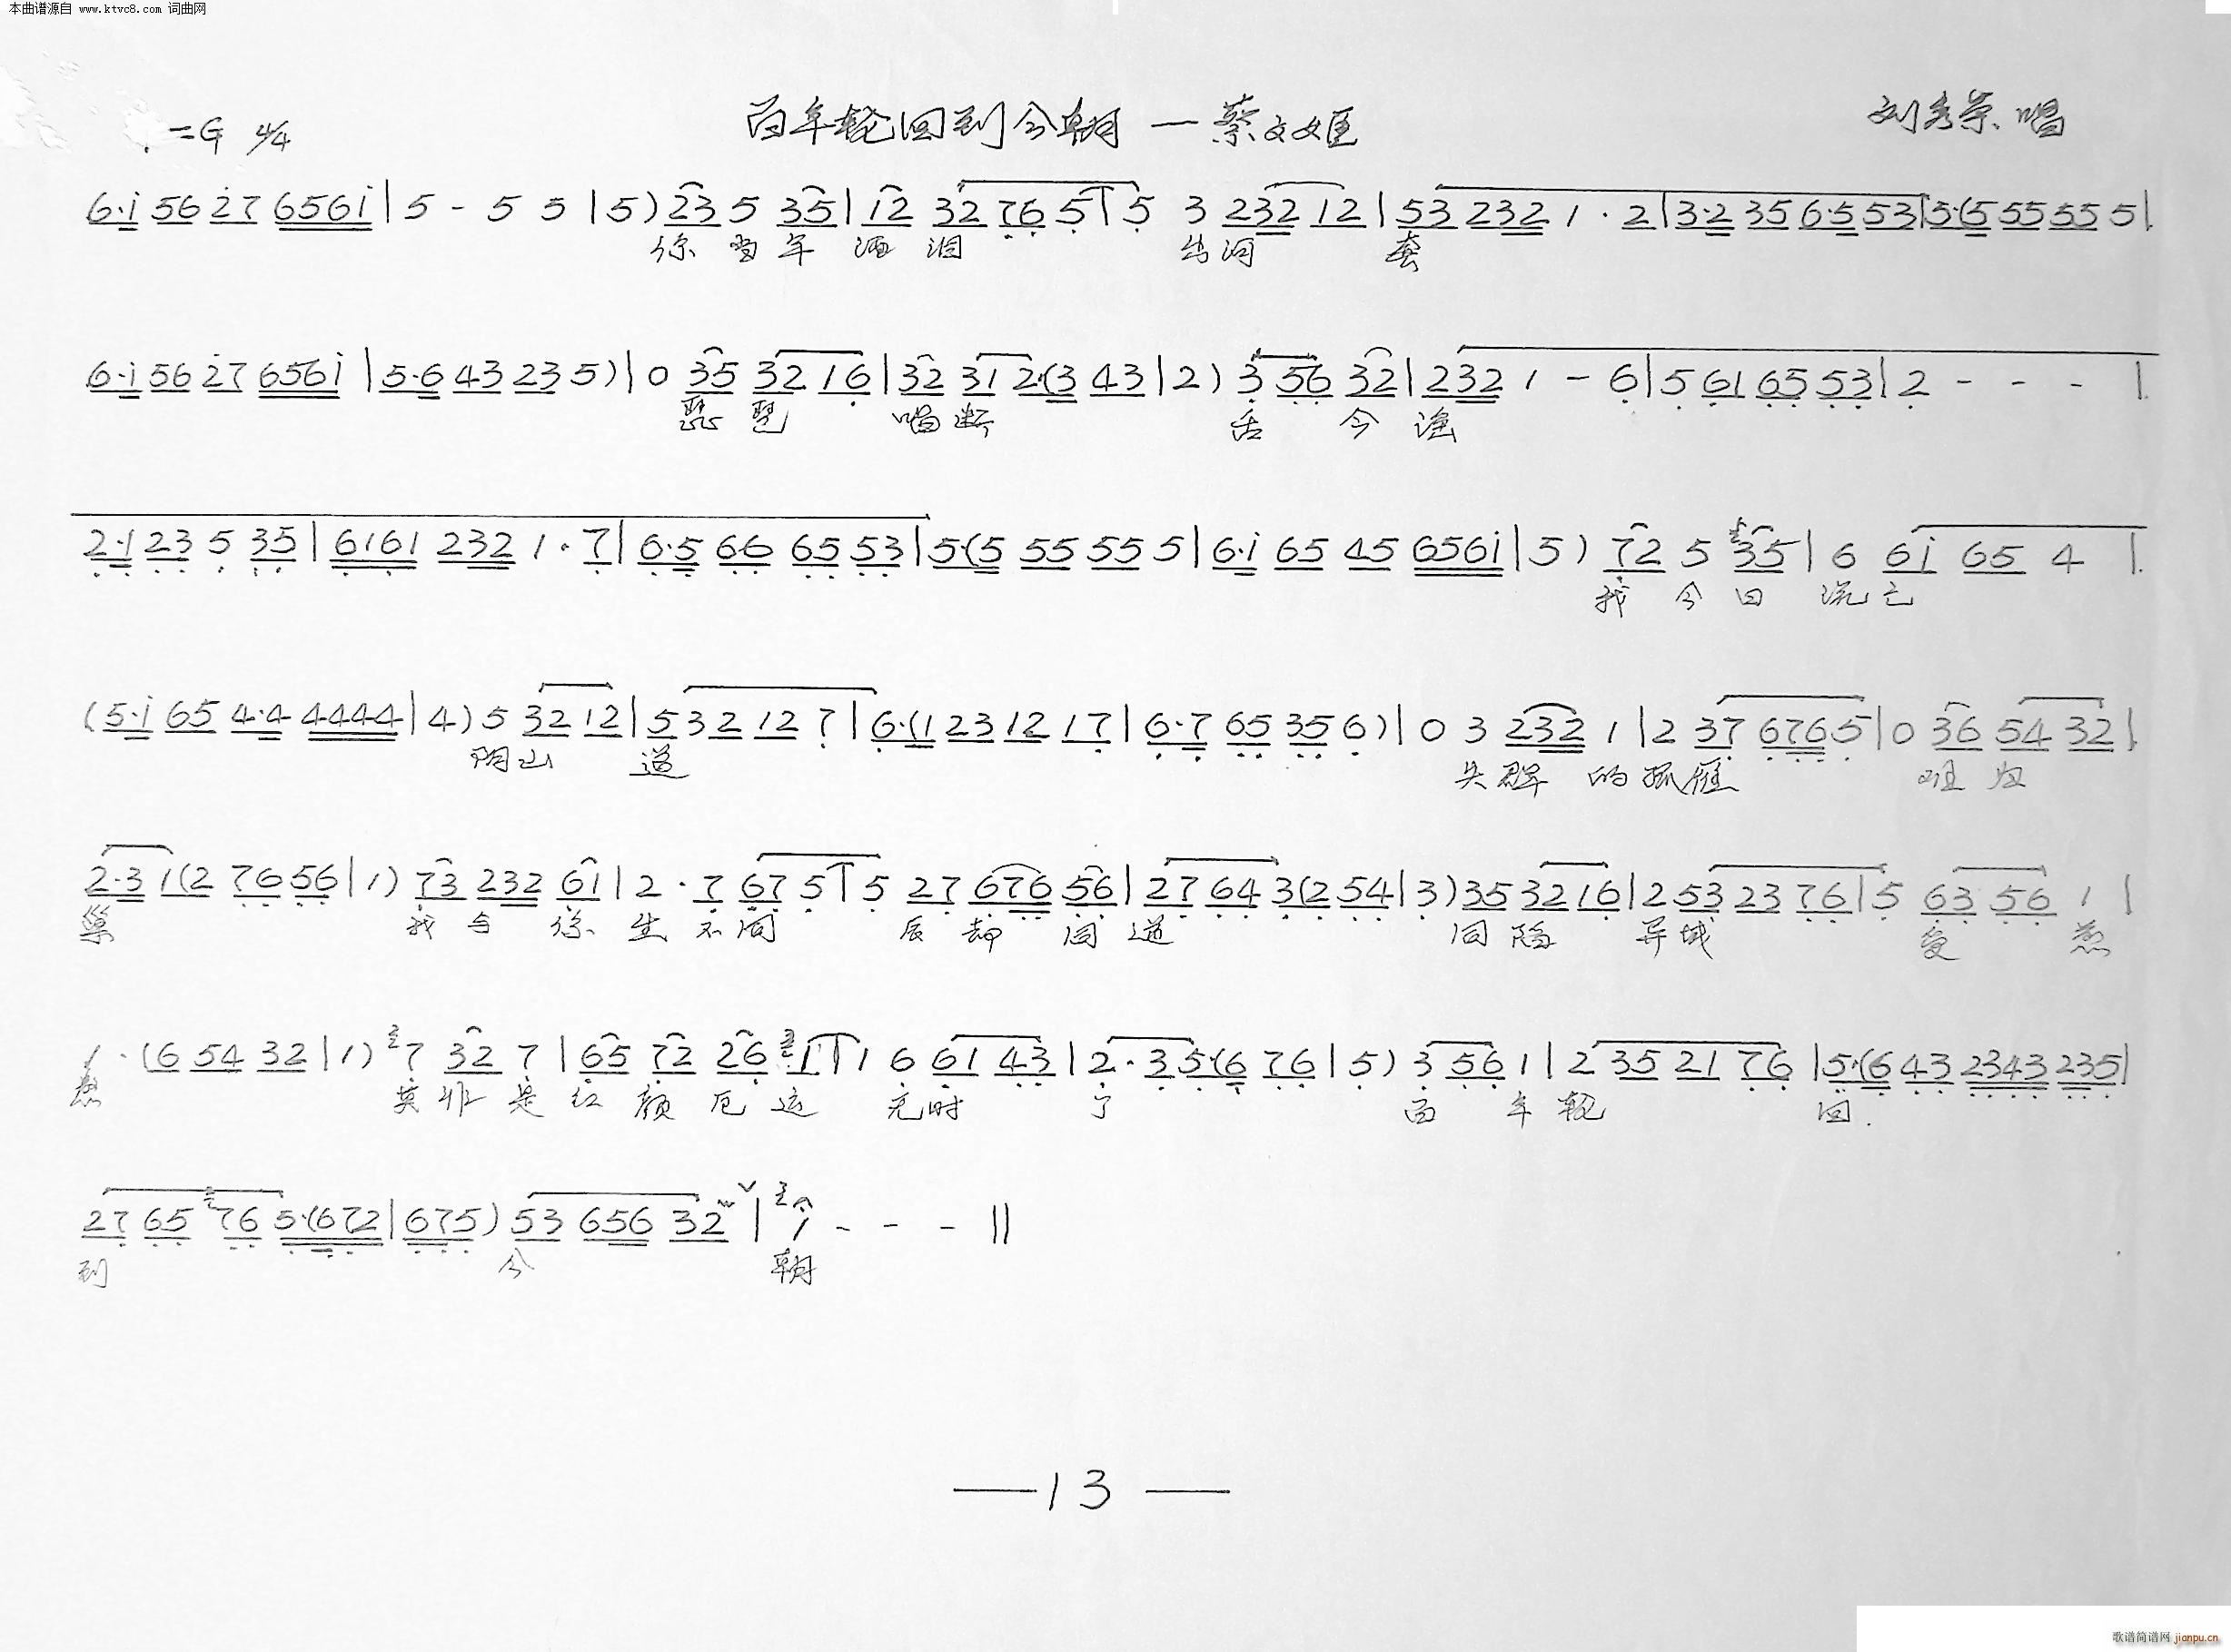 本曲谱源自 www.ktvc8.com 词曲网
百年轮回到今朝 — 蔡文姬
刘秀荣.唱
=G 4/4
6·i 56 27 6561 | 5 - 5 5 | 5) 23 5 35 | i2 32 76 5 | 5 3 232 12 | 53 232 1·2 | 3·2 35 6·5 53 | 5·(5 55 55 5 |
你 当 年 洒 泪 出 河 套
6·i 56 27 656i | 5·6 43 23 5) | 0 35 32 16 | 32 31 2·(3 43 | 2) 3 56 32 | 232 1 - 6 | 5 61 65 53 | 2 - - - |
琵 琶 唱 断 古 今 谣
2·1 23 5 35 | 6161 232 1·7 | 6·5 66 65 53 | 5·(5 55 55 5 | 6·i 65 45 656i | 5) 72 5 35 | 6 6i 65 4 |
我 今 日 流 亡
(5·i 65 4·4 4444 | 4) 5 32 12 | 5 32 12 7 | 6·(1 23 12 17 | 6·7 65 35 6) | 0 3 232 1 | 2 37 676 5 | 0 36 54 32 |
阴 山 道 失 群 的 孤 雁 难 归
2·3 1(2 76 56 | 1) 73 232 61 | 2·7 67 5 | 5 27 676 56 | 27 64 3(2 54 | 3) 35 32 16 | 2 53 23 76 | 5 63 56 1 |
巢 我 与 你 生 不 同 辰 却 同 道 同 陷 异 域 受 煎
1·(6 54 32 | 1) 7 32 7 | 65 72 26 1 | 1 6 61 43 | 2·3 5·(6 76 | 5) 3 56 1 | 2 35 21 76 | 5·(6 43 2343 235 |
熬 莫 非 是 红 颜 厄 运 无 时 了 百 年 轮 回.
27 65 76 5·(672 | 675) 53 656 32 | 1 - - - ||
到 今 朝
— 13 —
歌谱简谱网 jianpu.cn